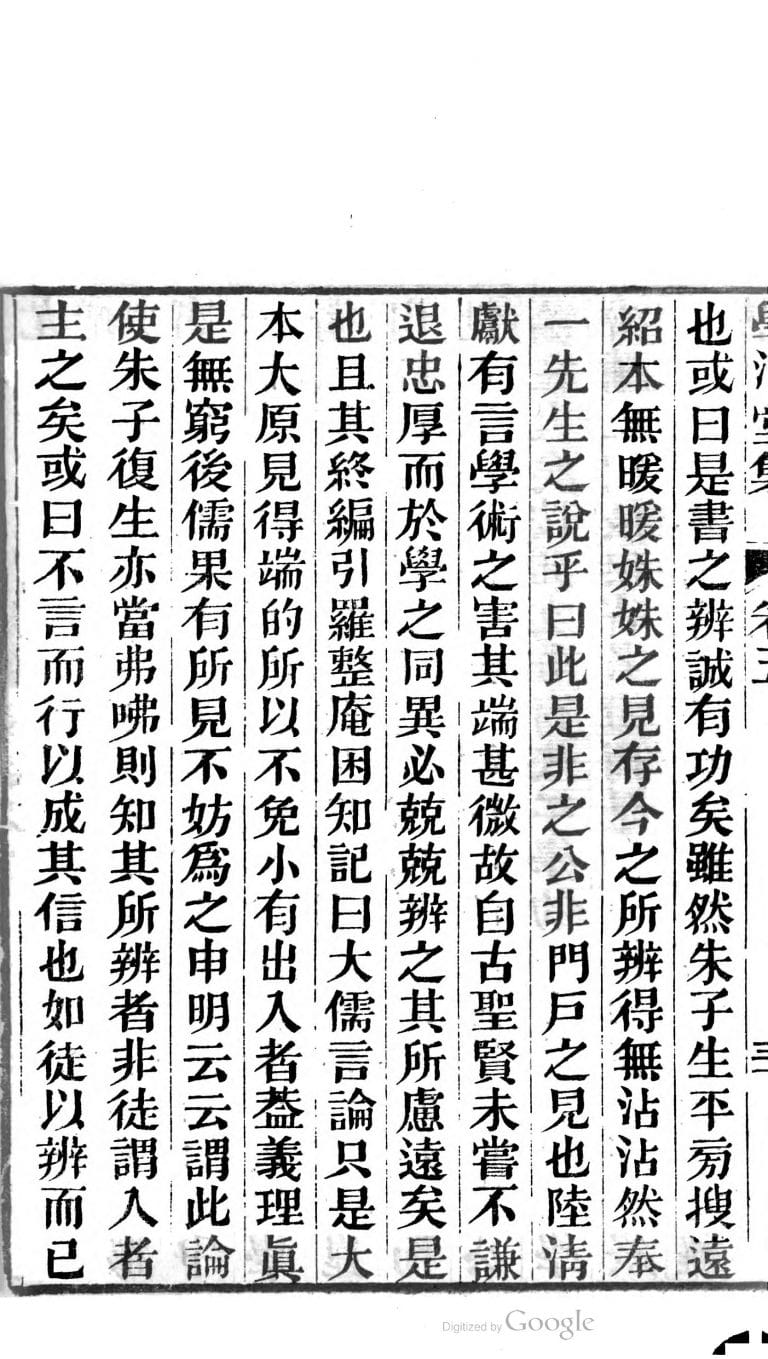 也或曰是書之辨誠有功矣雖然朱子生平旁搜遠
紹本無暖暖姝姝之見存今之所辨得無沾沾然奉
一先生之說乎曰此是非之公非門戶之見也陸清
獻有言學術之害其端甚微故自古聖賢未嘗不謙
退忠厚而於學之同異必兢兢辨之其所慮遠矣是
也且其終編引羅整庵困知記曰大儒言論只是大
本大原見得端的所以不免小有出入者葢義理眞
是無窮後儒果有所見不妨爲之申明云云謂此論
使朱子復生亦當弗咈則知其所辨者非徒謂入者
主之矣或曰不言而行以成其信也如徒以辨而已
Digitized by Google